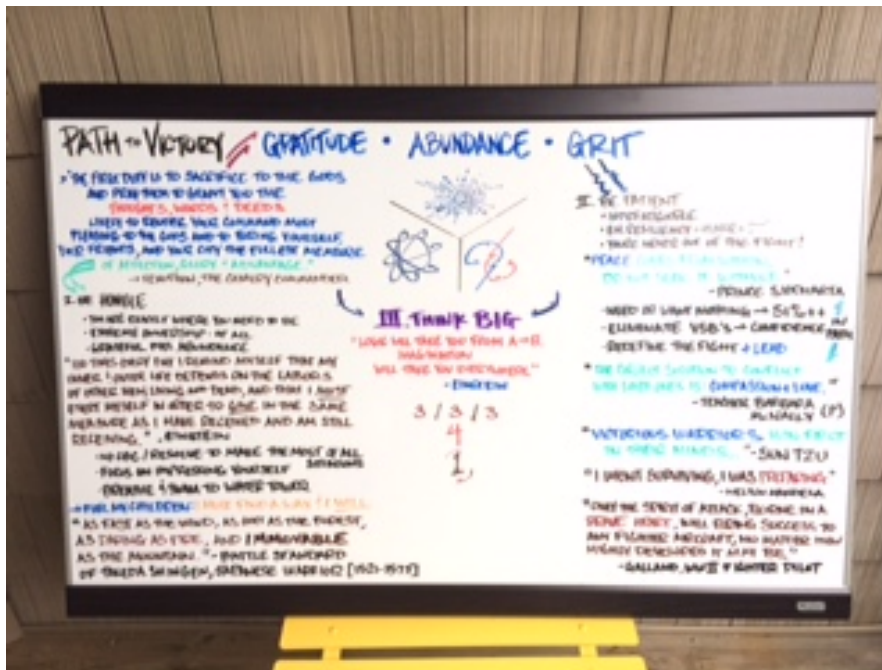 PATH TO VICTORY GRATITUDE • ABUNDANCE • GRIT
"THE FIRST DUTY IS TO SACRIFICE TO THE GODS
AND PRAY THEM TO GRANT YOU THE
THOUGHTS, WORDS & DEEDS
LIKELY TO RENDER YOUR COMMAND MOST
PLEASING TO THE GODS AND TO BRING YOURSELF,
YOUR FRIENDS, AND YOUR CITY THE FULLEST MEASURE
OF AFFECTION, GLORY & ADVANTAGE."
THE CAVALRY COMMANDER
I. BE HUMBLE
- YOU ARE EXACTLY WHERE YOU NEED TO BE
- EXTREME OWNERSHIP OF ALL
- GRATEFUL FOR ABUNDANCE
EVERY DAY I REMIND MYSELF THAT MY
INNER & OUTER LIFE DEPENDS ON THE LABORS
OF OTHER MEN, LIVING AND DEAD, AND THAT I MUST
EXERT MYSELF IN ORDER TO GIVE IN THE SAME
MEASURE AS I HAVE RECEIVED AND AM STILL
RECEIVING." EINSTEIN
RESOLVE TO MAKE THE MOST OF ALL
- FOCUS ON EXPRESSING YOURSELF
- BREATHE & SWIM TO WATER TOWER
FOR MY CHILDREN: MUST FIND A WAY & I WILL
"AS FAST AS THE WIND, AS QUIET AS THE FOREST,
AS DARING AS FIRE, AND IMMOVABLE
AS THE MOUNTAIN." - BATTLE STANDARD
OF TAKEDA SHINGEN, JAPANESE WARRIOR [1521-1573]
III. THINK BIG
"LOGIC WILL TAKE YOU FROM A → B.
IMAGINATION
WILL TAKE YOU EVERYWHERE"
- EINSTEIN
3 / 3 / 3
4
1
II. BE PATIENT
- YOU'RE NEVER OUT OF THE FIGHT!
"PEACE COMES FROM WITHIN.
DO NOT SEEK IT WITHOUT."
- PRINCE SIDDHARTHA
- NEED IT/WANT NOTHING → 51% ++
- ELIMINATE VSB'S → CONFIDENCE IN
- REDEFINE THE FIGHT + LEAD
SOLUTION TO CONFLICT
IS COMPASSION + LOVE."
- TEACHER BARBARA
MCNALLY (?)
"VICTORIOUS WARRIORS WIN FIRST
IN THEIR MINDS..." - SUN TZU
"I WASN'T SURVIVING, I WAS PREPARING"
- NELSON MANDELA
"ONLY THE SPIRIT OF ATTACK, BORNE IN A
BRAVE HEART, WILL BRING SUCCESS TO
ANY FIGHTER AIRCRAFT, NO MATTER HOW
HIGHLY DEVELOPED IT MAY BE."
- GALLAND, WWII FIGHTER PILOT